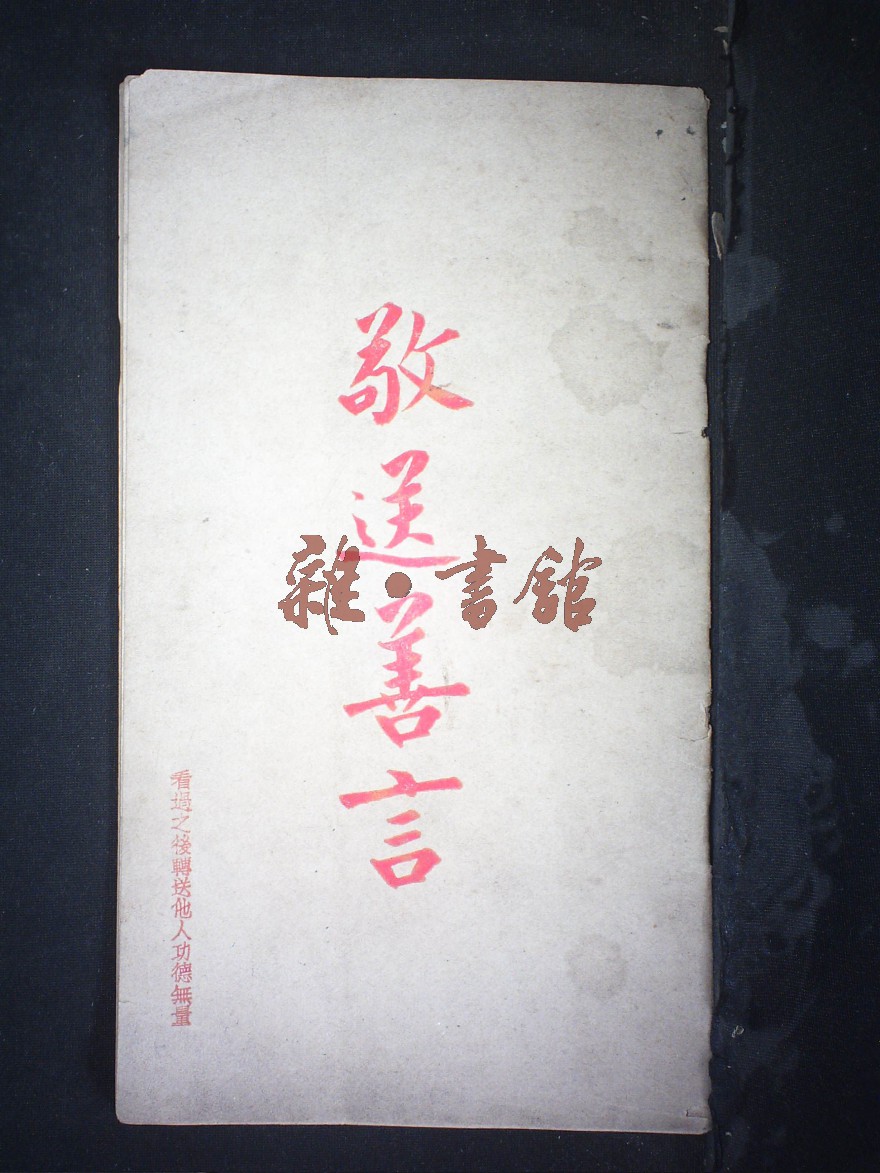 敬送善言
雜·書館
看過之後轉送他人功德無量